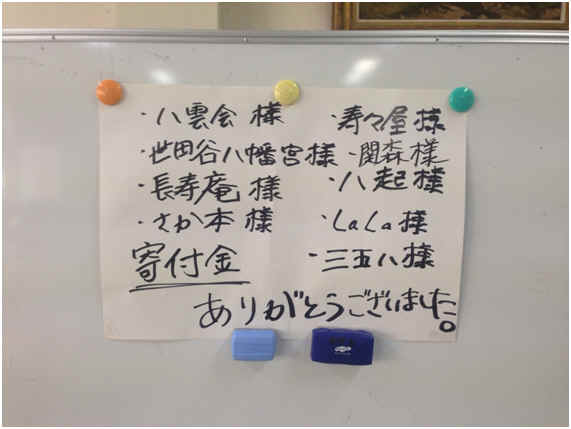 ・八雲会様 ・寿々屋様
・世田谷八幡宮様 ・関森様
・長寿庵様 ・八起様
・さか本様 ・LaLa様
寄付金 ・三五八様
ありがとうございました。